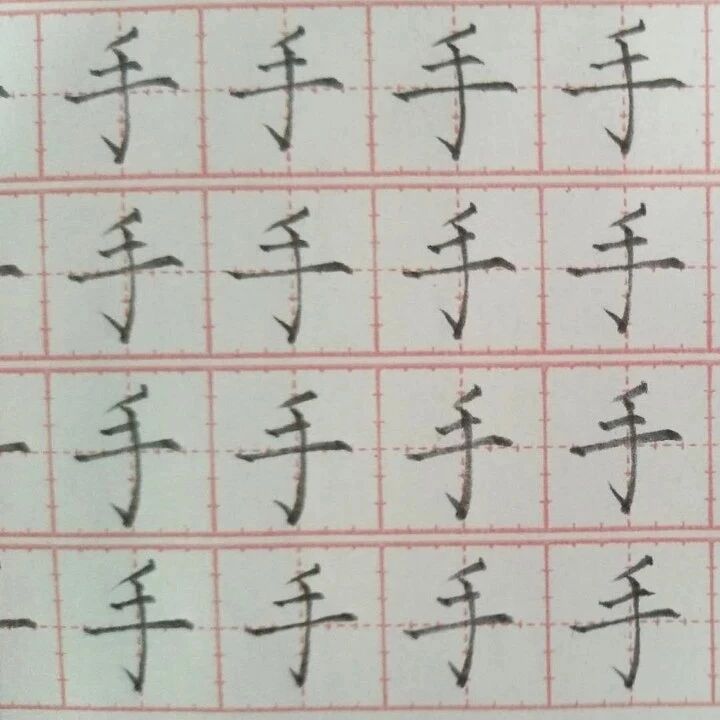 手手手手
手手手手
手手手手
手手手手